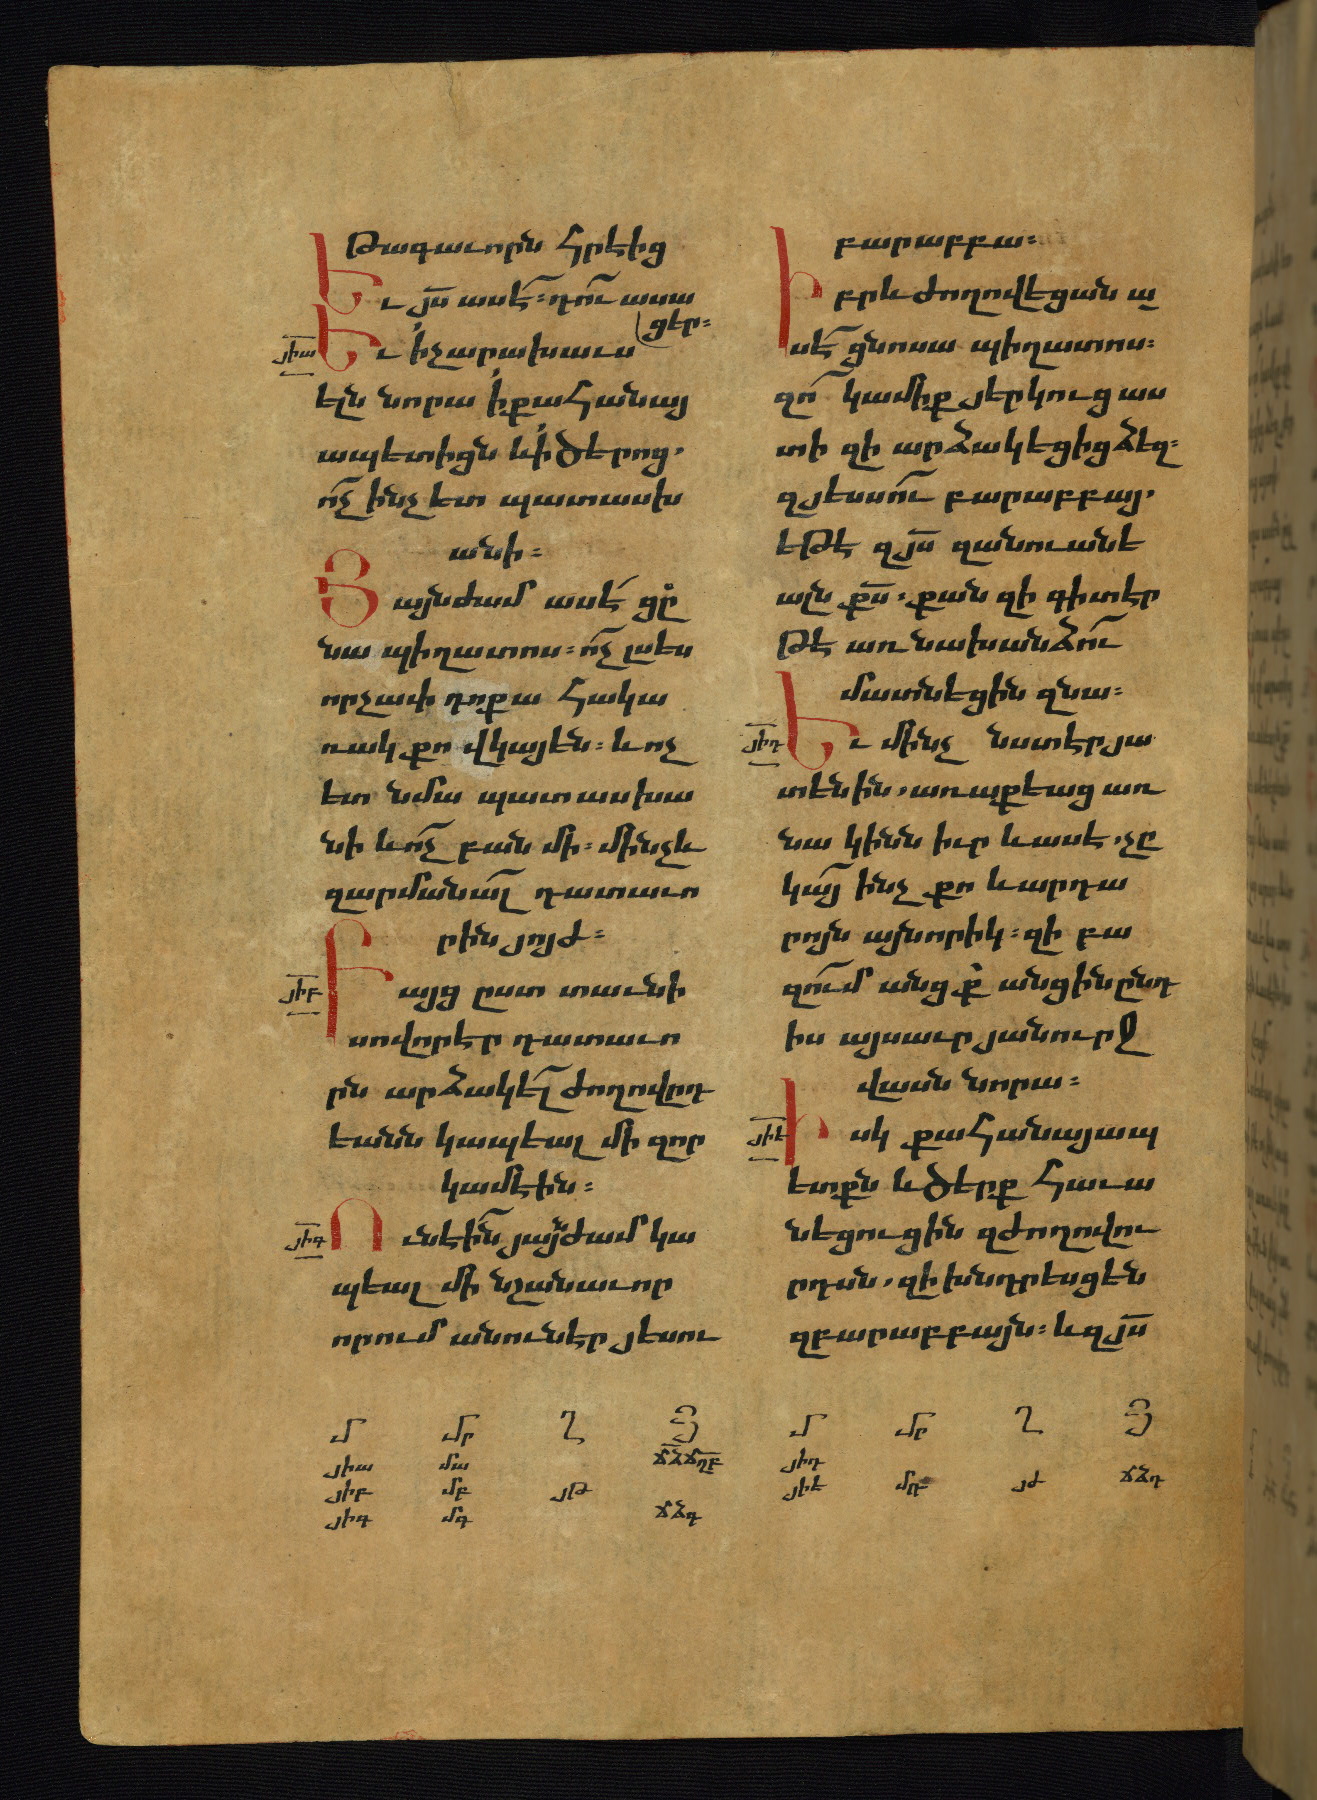 Թագաւորն Հրէից
Եւ յս ասէ. դու ասա
ցեր:
յիա
Եւ ի չարախաւս
ելն նորա ի քահանայ
ապետիցն և ի ծերոց.
ոչ ինչ ետ պատասխ
անի:
Յայնժամ ասէ ցը
նա պիղատոս: ոչ լսես
որչափ դոքա հակա
ռակ քո վկայեն: և ոչ
ետ նմա պատասխա
նի և ոչ բան մի: մինչև
զարմանալ դատաւո
րին յոյժ:
յիբ
Բայց ըստ տաւնի
սովորեր դատաւո
րն արձակել ժողովրդ
եանն կապեալ մի զոր
կամէին:
յիգ
Ունեին յայնժամ կա
պեալ մի նշանաւոր
որում անուներ յեսու
բարաբբա:
Իբրև ժողովեցան ա
սէ ցնոսա պիղատոս:
զո կամիք յերկուց աս
տի զի արձակեցից ձեզ:
զյեսսու բարաբբայ.
եթէ զյս զանուանե
ալն քս. քան զի գիտեր
թէ առ նախանձու
մատնեցին զնա:
յիդ
Եւ մինչ նստեր յա
տենին. առաքեաց առ
նա կինն իւր և ասէ. չը
կայ ինչ քո և արդա
րոյն այնորիկ: զի բա
զում անց ք անցին ընդ
իս այսաւր յանուրջ
վասն նորա:
յիե
Իսկ քահանայապ
ետքն և ծերք հաւա
նեցուցին զժողովու
րդսն. զի խնդրեսցեն
զբարաբբայն: և զյս
մ մր ղ յ մ մր ղ յ
յիա մա ճձ ճղբ յիդ
յիբ մբ յթ յիե մդ յժ ճձդ
յիգ մգ ճձգ